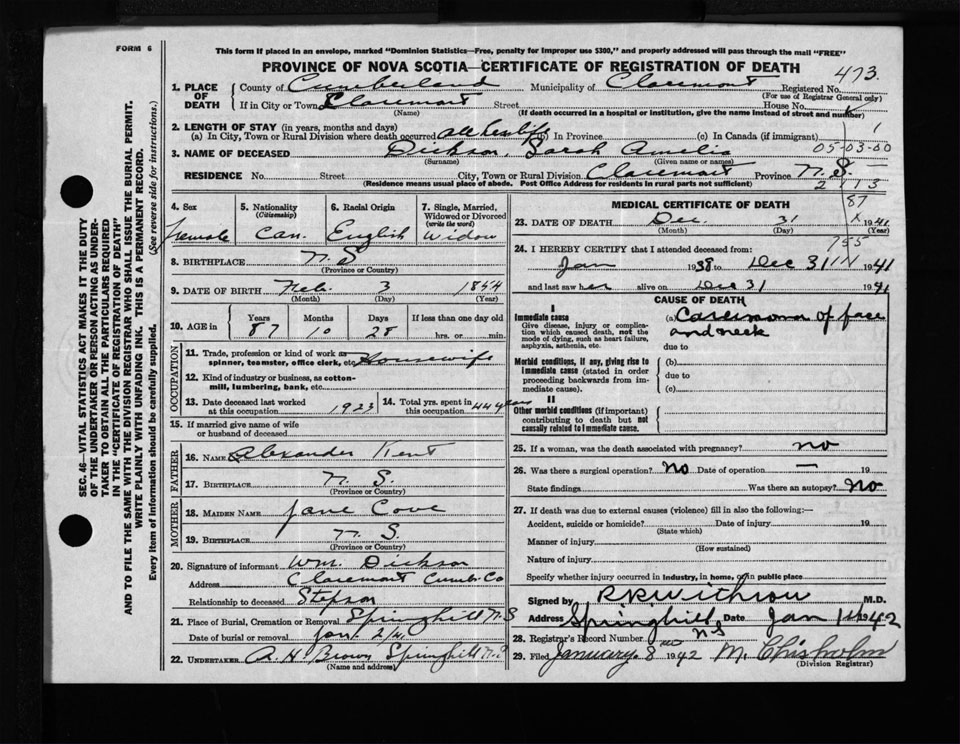 FORM 6
This form if placed in an envelope, marked "Dominion Statistics—Free, penalty for improper use $300," and properly addressed will pass through the mail "FREE"
PROVINCE OF NOVA SCOTIA—CERTIFICATE OF REGISTRATION OF DEATH
473.
1. PLACE OF DEATH
County of Cumberland Municipality of Claremont Registered No.
(For use of Registrar General only)
If in City or Town Claremont Street House No.
(Name) (If death occurred in a hospital or institution, give the name instead of street and number)
2. LENGTH OF STAY (in years, months and days)
(a) In City, Town or Rural Division where death occurred all her life (b) In Province (c) In Canada (if immigrant) 1
05-03-00
3. NAME OF DECEASED Dickson, Sarah Amelia
(Surname) (Given name or names)
RESIDENCE No. Street City, Town or Rural Division Claremont Province N.S.
(Residence means usual place of abode. Post Office Address for residents in rural parts not sufficient) 2 113
SEC. 46—VITAL STATISTICS ACT MAKES IT THE DUTY
OF THE UNDERTAKER OR PERSON ACTING AS UNDER-
TAKER TO OBTAIN ALL THE PARTICULARS REQUIRED
IN THE "CERTIFICATE OF REGISTRATION OF DEATH"
AND TO FILE THE SAME WITH THE DIVISION REGISTRAR WHO SHALL ISSUE THE BURIAL PERMIT.
WRITE PLAINLY WITH UNFADING INK. THIS IS A PERMANENT RECORD.
Every item of information should be carefully supplied. (See reverse side for instructions.)
4. Sex
Female
5. Nationality
(Citizenship)
Can.
6. Racial Origin
English
7. Single, Married, Widowed or Divorced
(write the word)
Widow
8. BIRTHPLACE N.S
(Province or Country)
9. DATE OF BIRTH Feb. 3 1854
(Month) (Day) (Year)
10. AGE in
Years Months Days If less than one day old
87 10 28 hrs. or min.
OCCUPATION
11. Trade, profession or kind of work as
spinner, teamster, office clerk, etc. Housewife
12. Kind of industry or business, as cotton-
mill, lumbering, bank, etc.
13. Date deceased last worked
at this occupation 1923
14. Total yrs. spent in
this occupation 44 years
15. If married give name of wife
or husband of deceased
FATHER
16. NAME Alexander Kent
17. BIRTHPLACE N. S.
(Province or Country)
MOTHER
18. MAIDEN NAME Jane Cove
19. BIRTHPLACE N. S.
(Province or Country)
20. Signature of informant Wm. Dickson
Address Claremont Cumb. Co
Relationship to deceased Stepson
21. Place of Burial, Cremation or Removal Springhill N.S
Date of burial or removal Jan. 2/4
22. UNDERTAKER A. H Brown Springhill N.S
(Name and address)
MEDICAL CERTIFICATE OF DEATH 87
23. DATE OF DEATH Dec. 31 1941
(Month) (Day) (Year)
24. I HEREBY CERTIFY that I attended deceased from: 755
Jan 1938 to Dec 31 1941
and last saw her alive on Dec 31 1941
CAUSE OF DEATH
I
Immediate cause
Give disease, injury or complica-
tion which caused death, not the
mode of dying, such as heart failure,
asphyxia, asthenia, etc.
(a) Carcinoma of face
and neck
due to
Morbid conditions, if any, giving rise to
immediate cause (stated in order
proceeding backwards from im-
mediate cause).
(b)
due to
(c)
II
Other morbid conditions (if important)
contributing to death but not
causally related to immediate cause.
25. If a woman, was the death associated with pregnancy? no
26. Was there a surgical operation? No Date of operation — 19
State findings Was there an autopsy? No
27. If death was due to external causes (violence) fill in also the following:—
Accident, suicide or homicide? Date of injury 19
(State which)
Manner of injury
(How sustained)
Nature of injury
Specify whether injury occurred in industry, in home, or in public place
Signed by RKWithrow M.D.
Address Springhill N S Date Jan 1942
28. Registrar's Record Number
29. Filed January 8 1942 M. Chisholm
(Division Registrar)